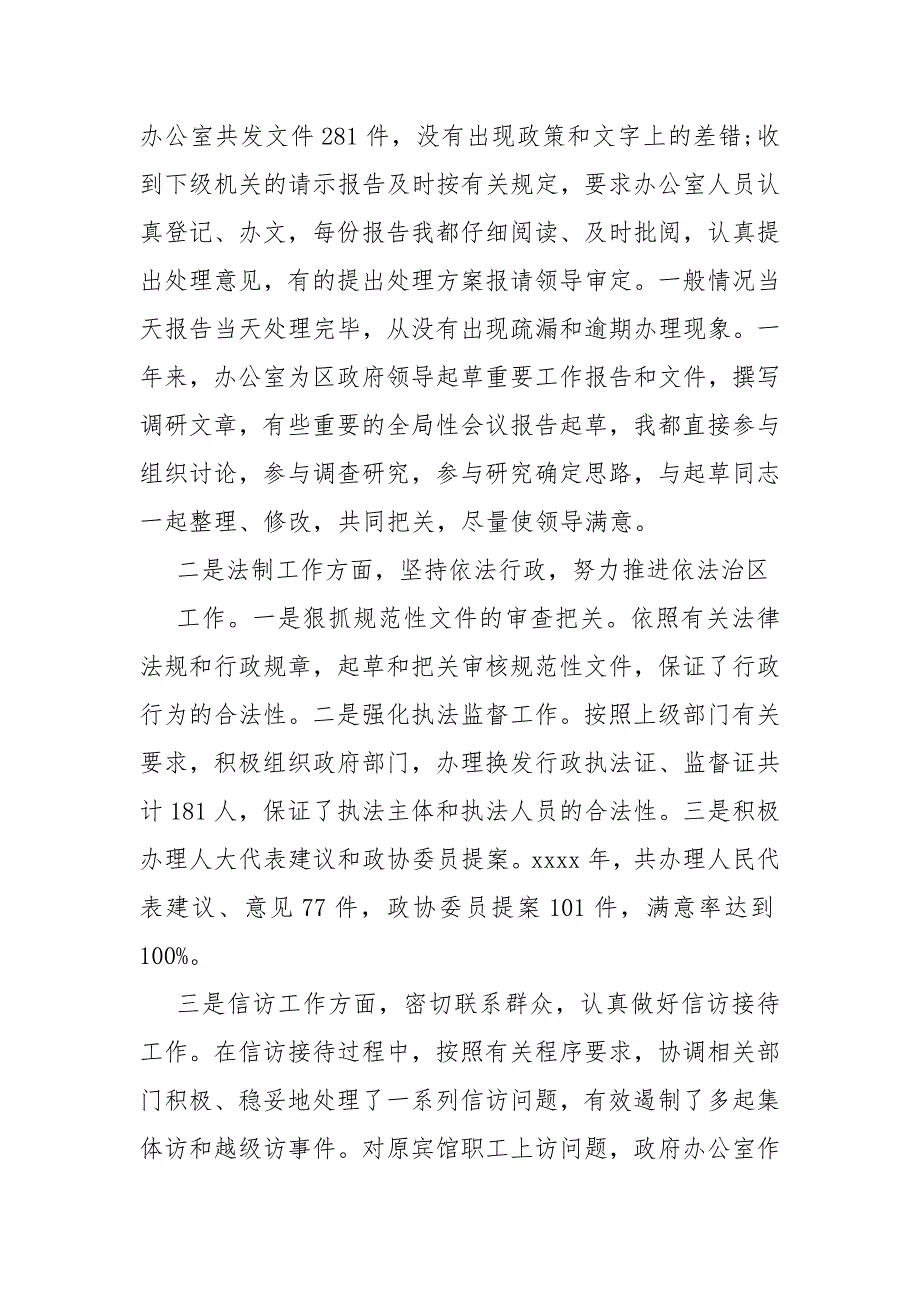 办公室共发文件 281 件，没有出现政策和文字上的差错;收
到下级机关的请示报告及时按有关规定，要求办公室人员认
真登记、办文，每份报告我都仔细阅读、及时批阅，认真提
出处理意见，有的提出处理方案报请领导审定。一般情况当
天报告当天处理完毕，从没有出现疏漏和逾期办理现象。一
年来，办公室为区政府领导起草重要工作报告和文件，撰写
调研文章，有些重要的全局性会议报告起草，我都直接参与
组织讨论，参与调查研究，参与研究确定思路，与起草同志
一起整理、修改，共同把关，尽量使领导满意。
二是法制工作方面，坚持依法行政，努力推进依法治区
工作。一是狠抓规范性文件的审查把关。依照有关法律
法规和行政规章，起草和把关审核规范性文件，保证了行政
行为的合法性。二是强化执法监督工作。按照上级部门有关
要求，积极组织政府部门，办理换发行政执法证、监督证共
计 181 人，保证了执法主体和执法人员的合法性。三是积极
办理人大代表建议和政协委员提案。xxxx 年，共办理人民代
表建议、意见 77 件，政协委员提案 101 件，满意率达到
100%。
三是信访工作方面，密切联系群众，认真做好信访接待
工作。在信访接待过程中，按照有关程序要求，协调相关部
门积极、稳妥地处理了一系列信访问题，有效遏制了多起集
体访和越级访事件。对原宾馆职工上访问题，政府办公室作